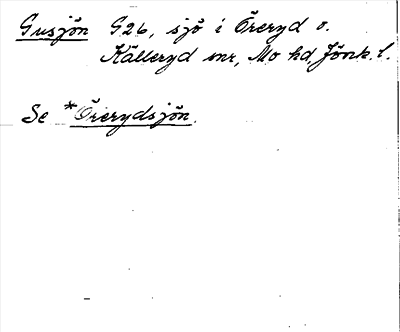 Gusjön G26, sjö i Öreryd o.
Källeryd snr, Mo hd, Jönk. l.
Se *Örerydsjön.